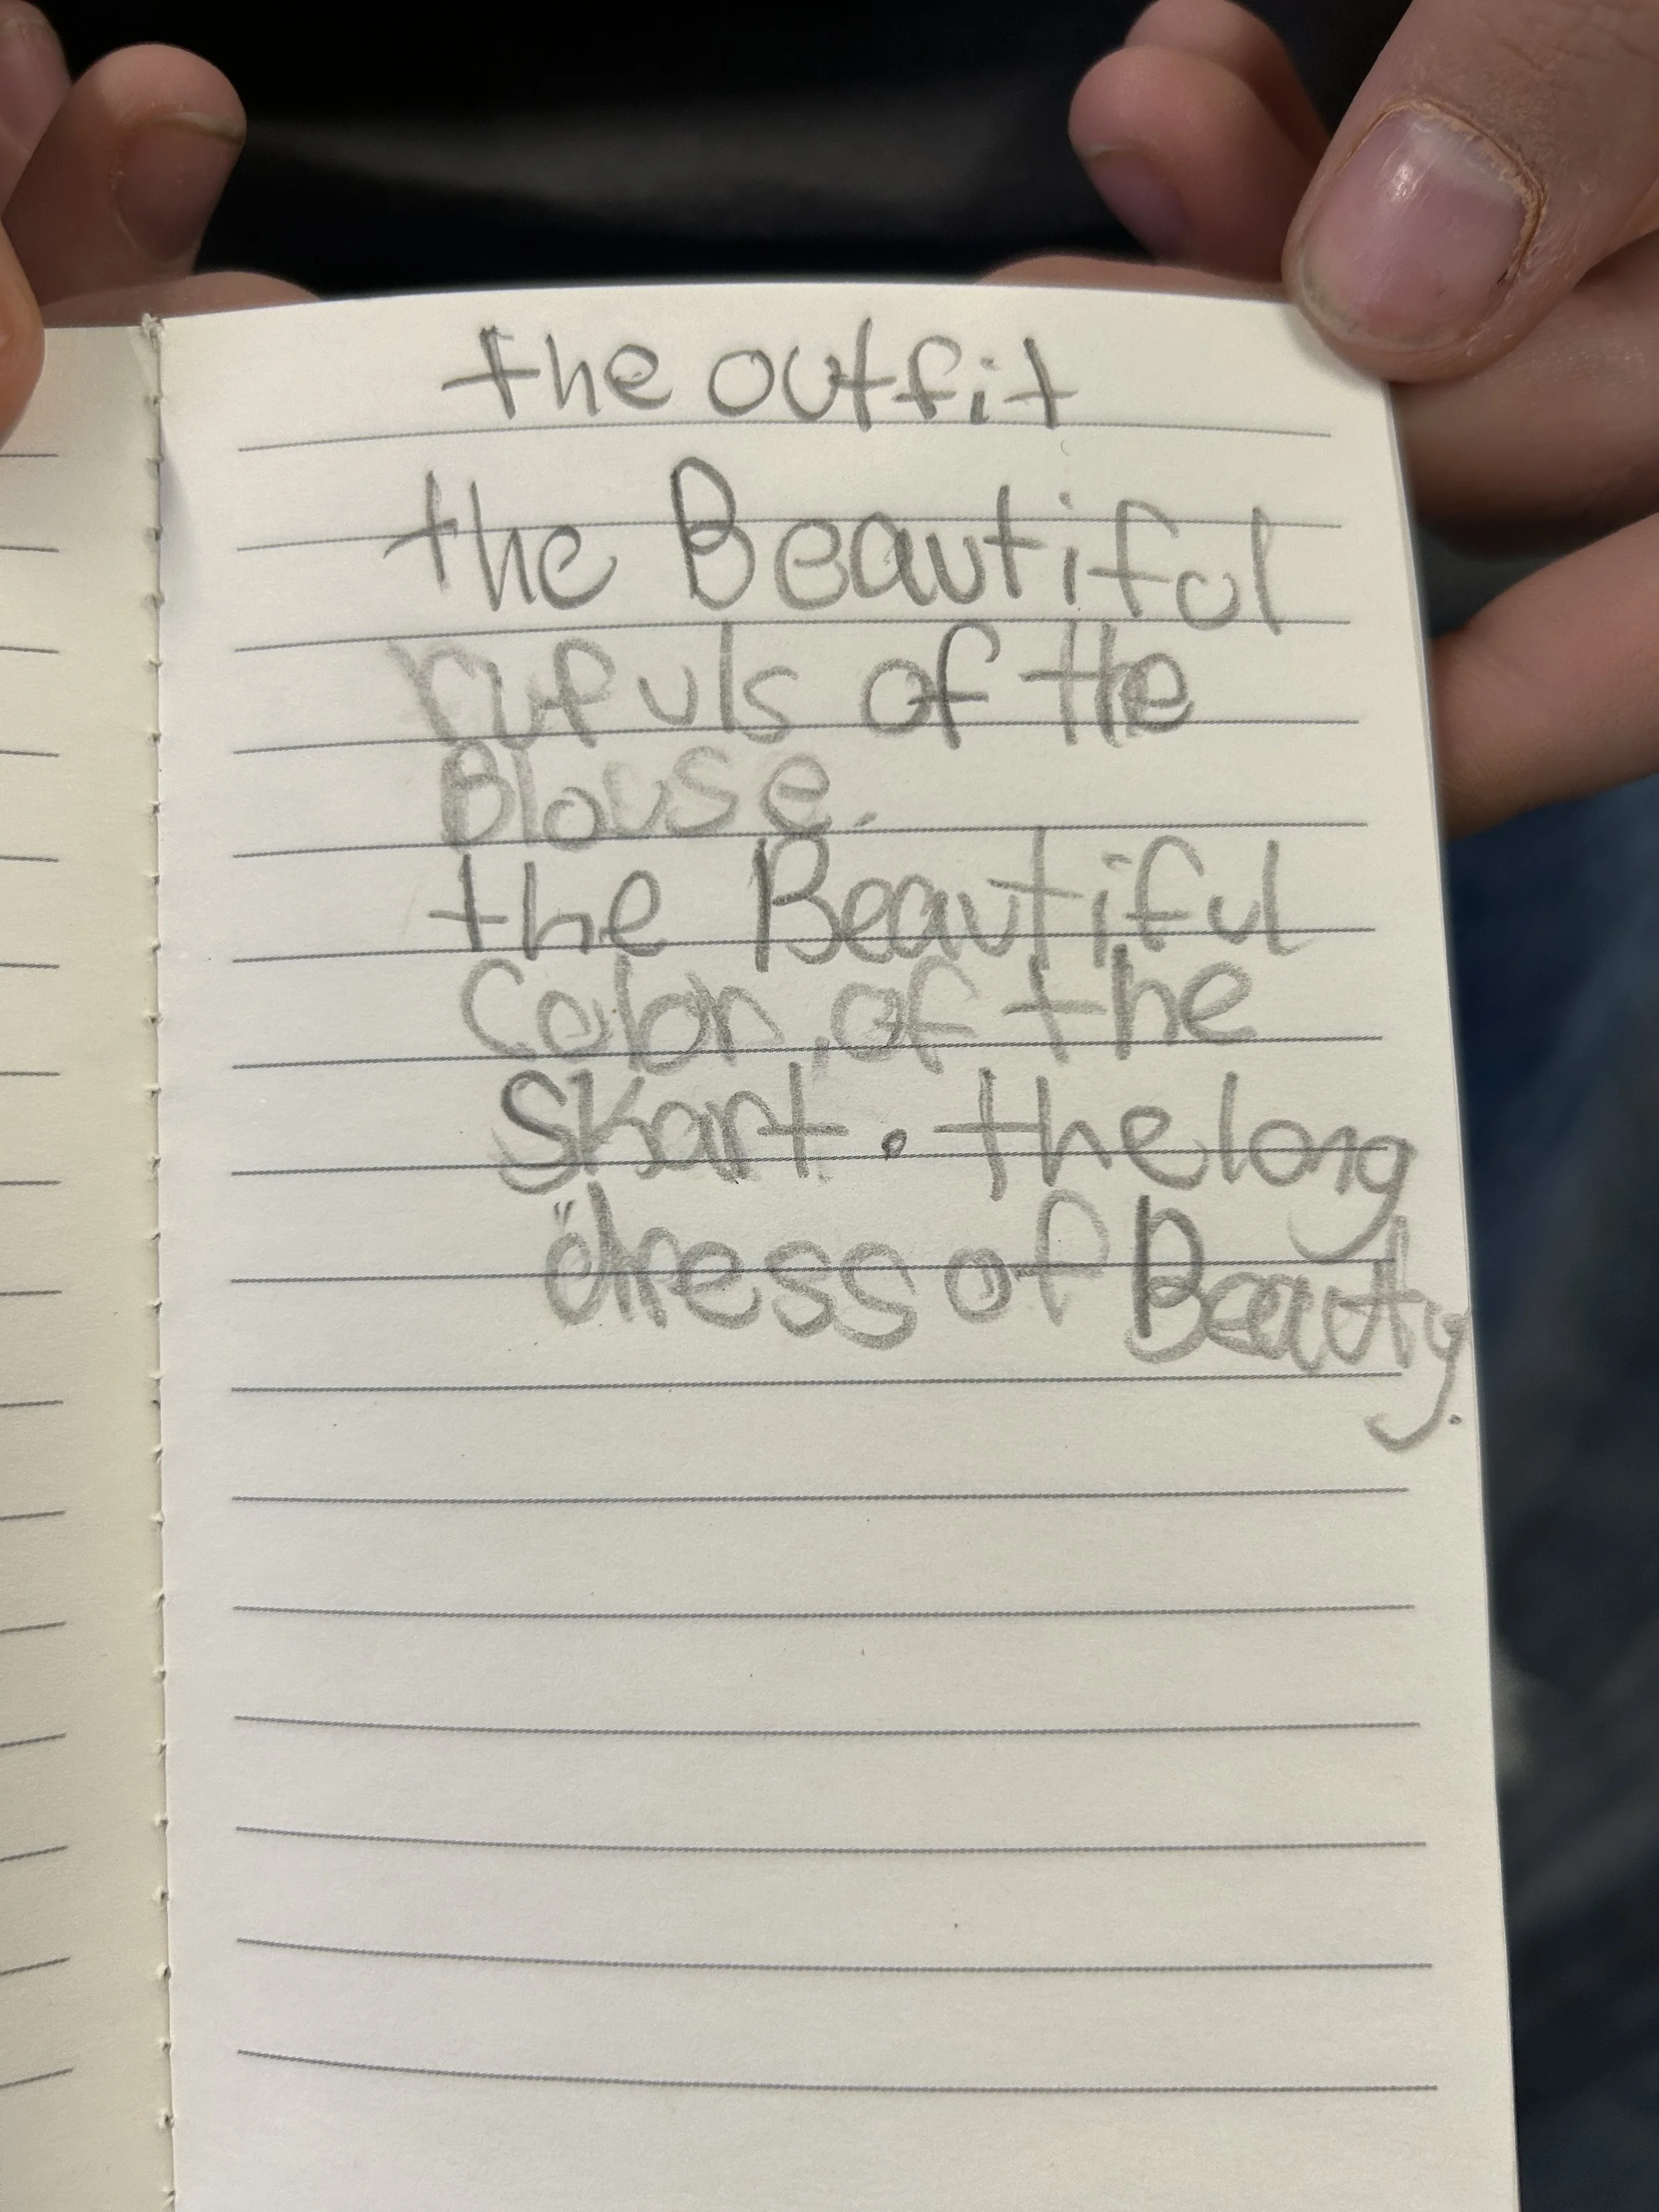 the outfit
the Beautiful
rufuls of the
Blouse.
the Beautiful
Color, of the
Skart. the long
"dress of Beauty.